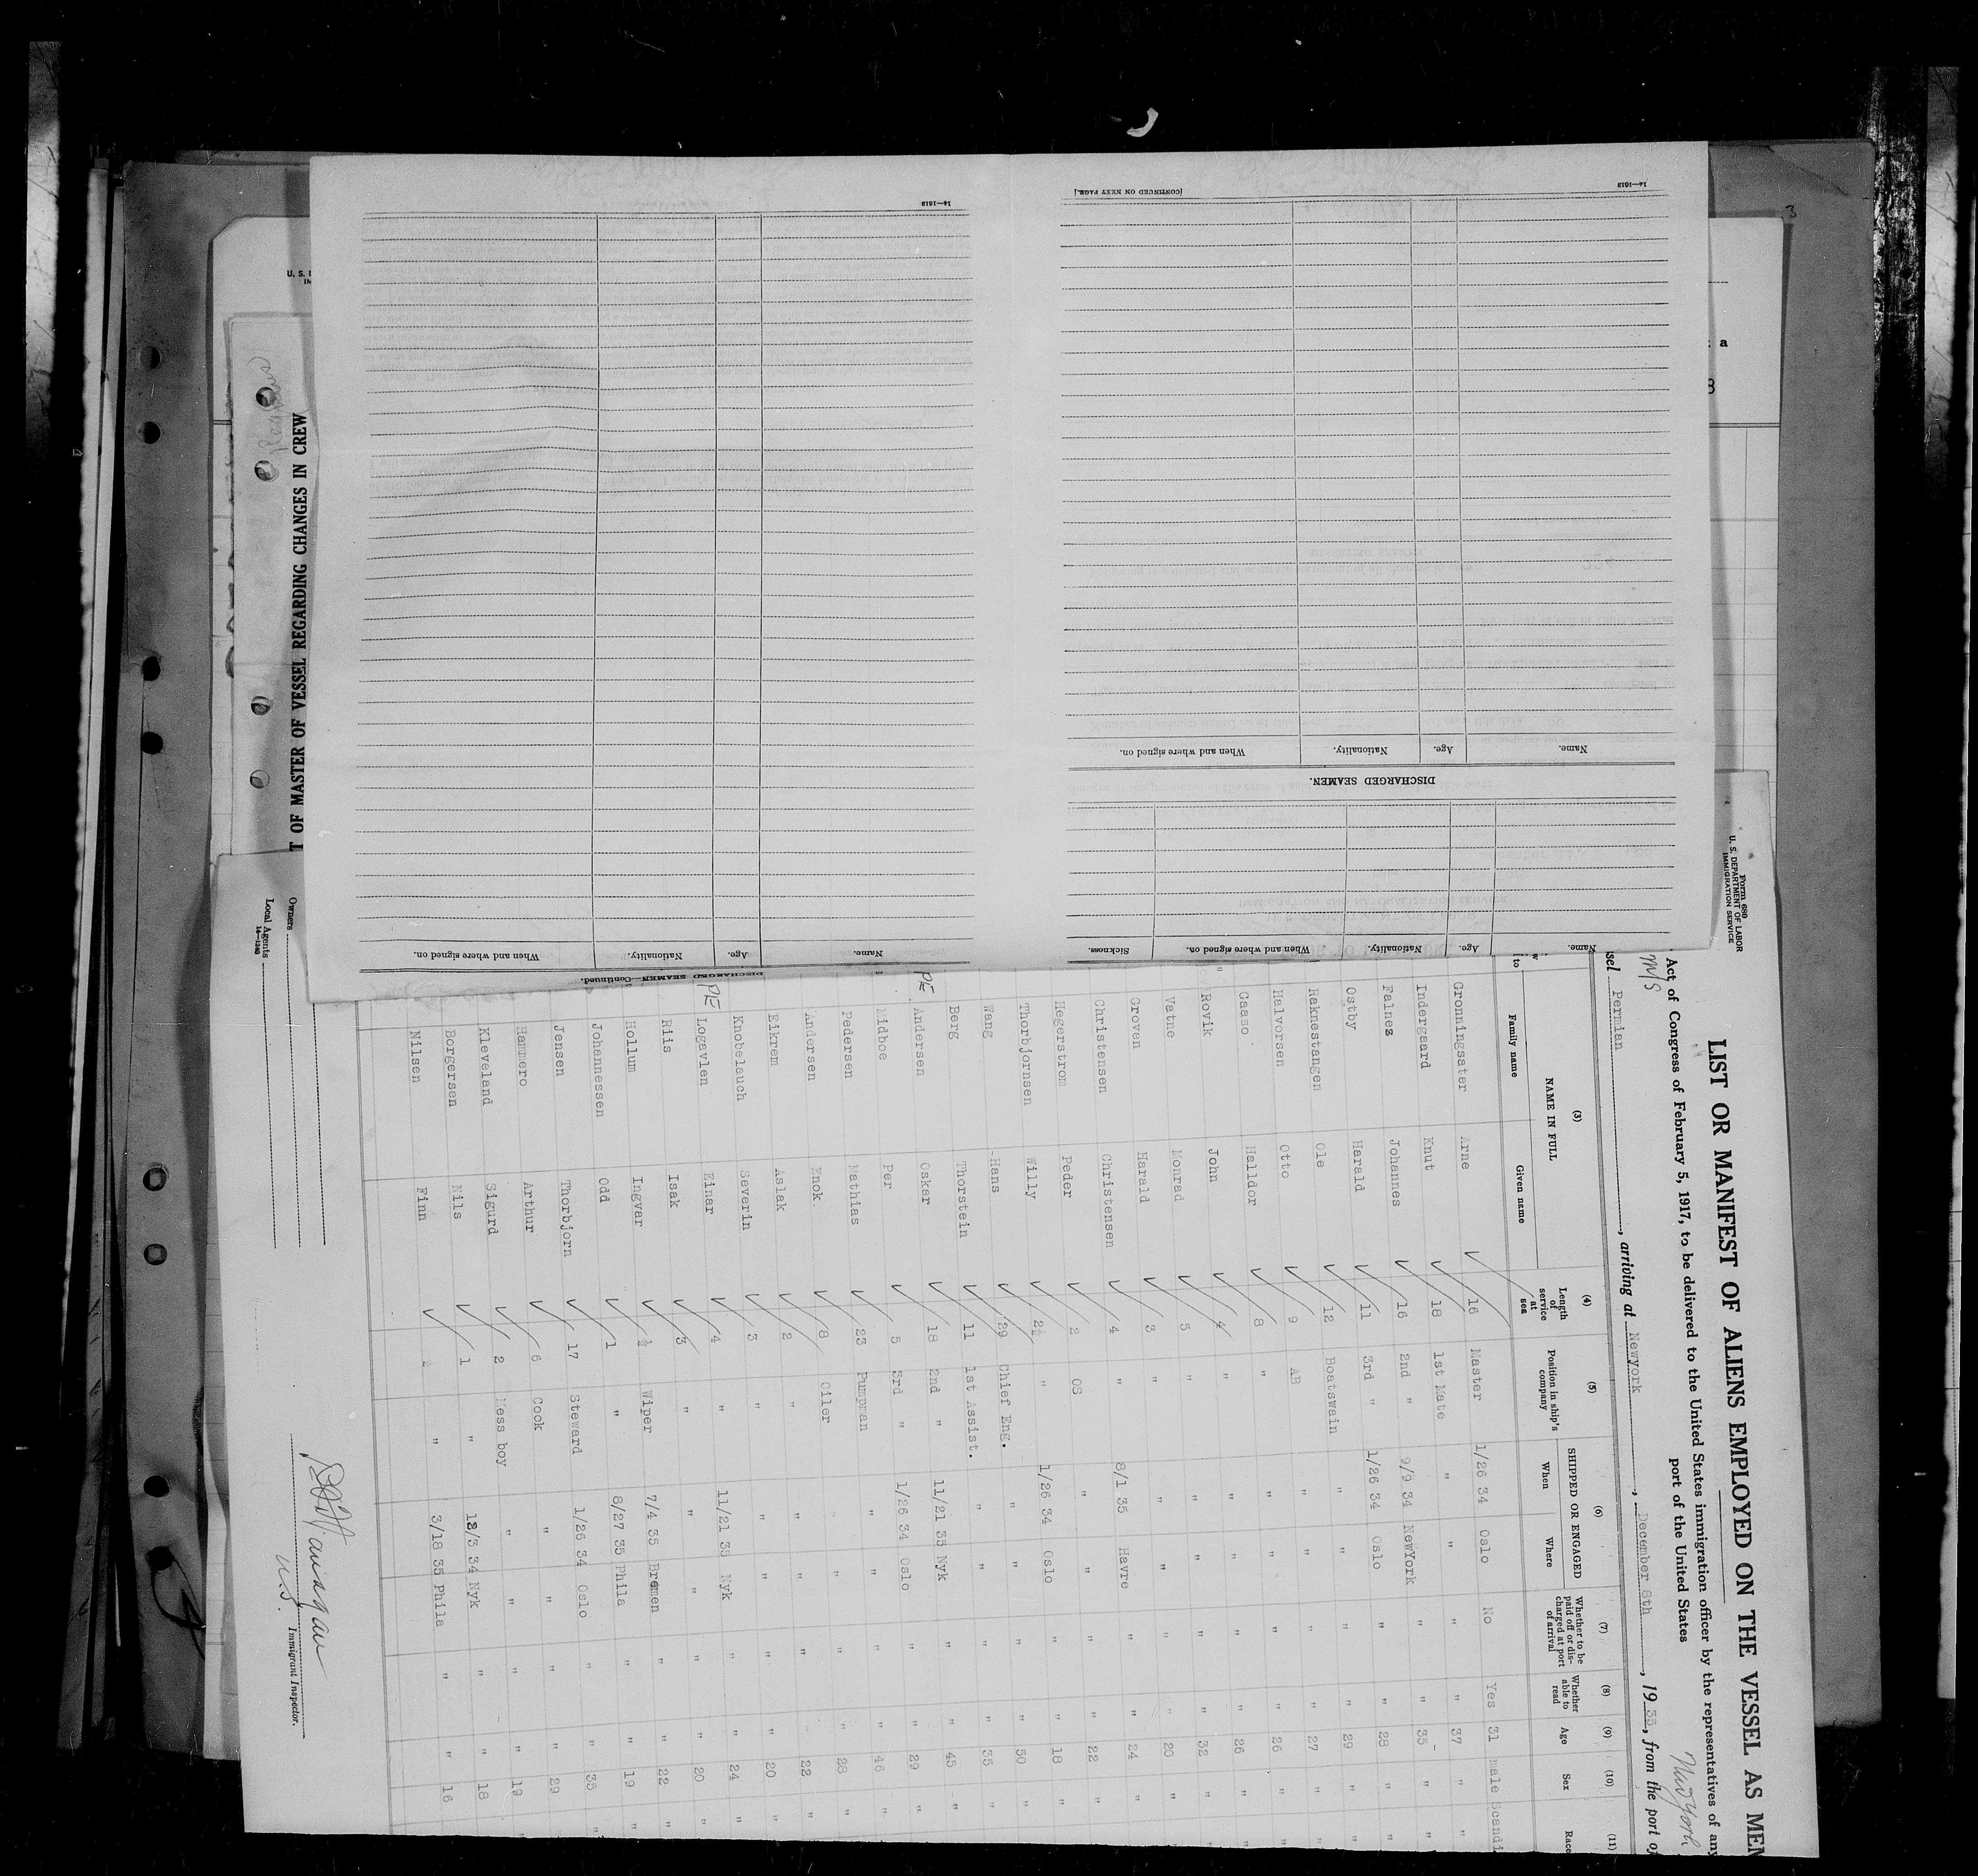 14—1613
[CONTINUED ON NEXT PAGE.]
14—1613
DISCHARGED SEAMEN.
Name. Age. Nationality. When and where signed on.
Name. Age. Nationality. When and where signed on. Sickness.
DISCHARGED SEAMEN—Continued.
Name. Age. Nationality. When and where signed on.
T OF MASTER OF VESSEL REGARDING CHANGES IN CREW
Form 680
U. S. DEPARTMENT OF LABOR
IMMIGRATION SERVICE
LIST OR MANIFEST OF ALIENS EMPLOYED ON THE VESSEL AS MEM
Act of Congress of February 5, 1917, to be delivered to the United States immigration officer by the representatives of any
port of the United States
M/S
sel Permian, arriving at Newyork, December 8th, 1935, from the port of
(3) (4) (5) (6) (7) (8) (9) (10) (11)
NAME IN FULL
Family name Given name
Length of service at sea
Position in ship's company
SHIPPED OR ENGAGED
When Where
Whether to be paid off or discharged at port of arrival
Whether able to read
Age
Sex
Race
Gronningsater Arne 16 Master 1/26 34 Oslo No Yes 31 male Scandi
Indergaard Knut 18 1st Mate " " " " 37 "
Falnez Johannes 16 2nd " 9/9 34 NewYork " " 35 "
Ostby Harald 11 3rd " 1/26 34 Oslo " " 28 "
Raknestangen Ole 12 Boatswain " " " " 29 "
Halvorsen Otto 9 AB " " " " 27 "
Gaaso Halldor 8 " " " " " 26 "
Rovik John 4 " " " " " 26 "
Vatne Monrad 5 " " " " " 32 "
Groven Harald 3 " " " " " 20 "
Christensen Christensen 4 " 8/1 35 Havre " " 24 "
Hegerstrom Peder 2 OS " " " " 22 "
Thorbjornsen Willy 2½ " 1/26 34 Oslo " " 18 "
Wang Hans 29 Chief Eng. " " " " 50 "
Berg Thorstein 11 1st Assist. " " " " 35 "
Andersen Oskar 18 2nd " 11/21 35 Nyk " " 45 "
Midboe Per 5 3rd " 1/26 34 Oslo " " 29 "
Pedersen Mathias 23 Pumpman " " " " 46 "
Andersen Enok 8 Oiler " " " " 28 "
Eikrem Aslak 2 " " " " " 22 "
Knobelauch Severin 3 " " " " " 20 "
Logavlen Einar 4 " 11/21 35 Nyk " " 24 "
Riis Isak 3 " " " " " 20 "
Hollum Ingvar ½ Wiper 7/4 35 Bremen " " 22 "
Johannessen Odd 1 " 8/27 35 Phila " " 19 "
Jensen Thorbjorn 17 Steward 1/26 34 Oslo " " 35 "
Hammero Arthur 6 Cook " " " " 29 "
Kleveland Sigurd 2 Mess boy " " " " 19
Borgersen Nils 1 " 12/3 34 Nyk " " 18
Nilsen Finn " 3/18 35 Phila " " 16
PE
PE
Owners
Local Agents
14—1240
Immigrant Inspector.